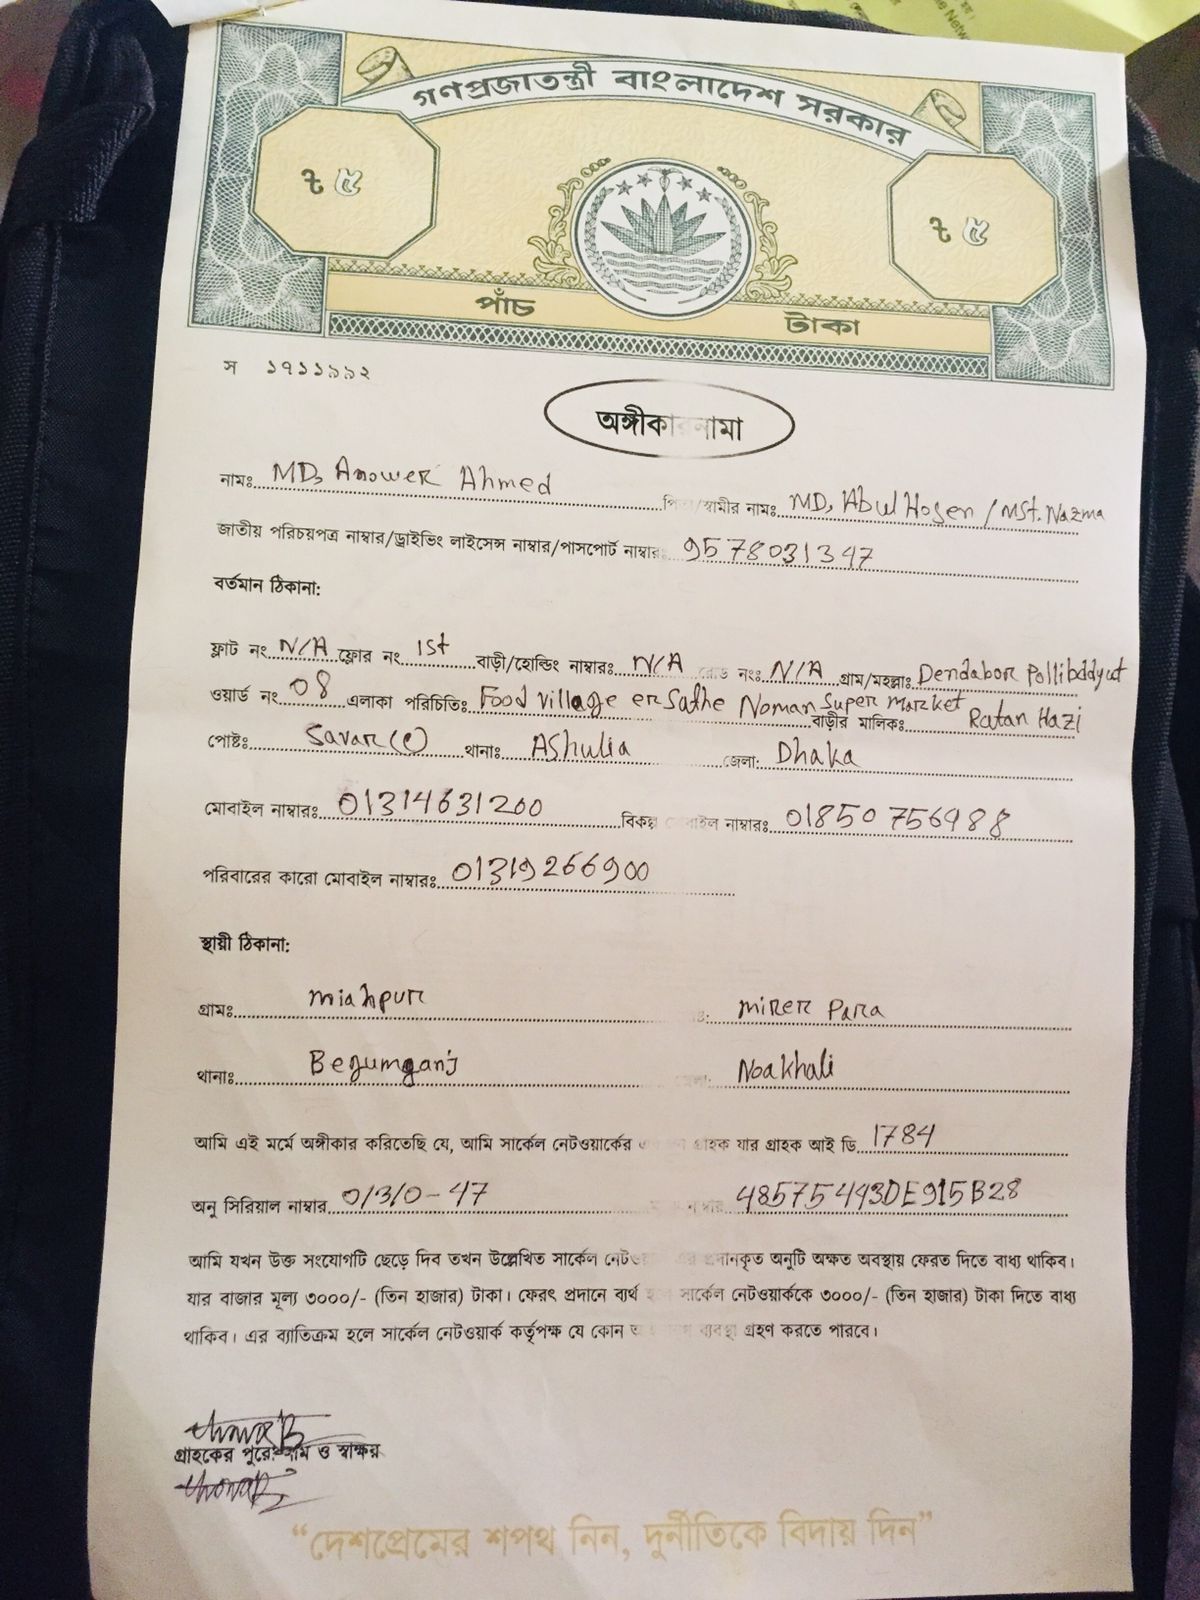 গণপ্রজাতন্ত্রী বাংলাদেশ সরকার
৳ ৫ ৳ ৫
পাঁচ টাকা
স ১৭১১৯৯২
অঙ্গীকারনামা
নামঃ MD, Anower Ahmed পিতা/স্বামীর নামঃ MD, Abul Hosen / MSt. Nazma
জাতীয় পরিচয়পত্র নাম্বার/ড্রাইভিং লাইসেন্স নাম্বার/পাসপোর্ট নাম্বারঃ 9578031347
বর্তমান ঠিকানা:
ফ্লাট নং N/A ফ্লোর নং 1st বাড়ী/হোল্ডিং নাম্বারঃ N/A রোড নংঃ N/A গ্রাম/মহল্লাঃ Dendabor Pollibddyut
ওয়ার্ড নং 08 এলাকা পরিচিতিঃ Food village er Sathe Noman Super Market বাড়ীর মালিকঃ Ratan Hazi
পোষ্টঃ Savar (C) থানাঃ AShulia জেলা: Dhaka
মোবাইল নাম্বারঃ 01314631200 বিকল্প মোবাইল নাম্বারঃ 01850756988
পরিবারের কারো মোবাইল নাম্বারঃ 01319266900
স্থায়ী ঠিকানা:
গ্রামঃ Miahpur Mirer Para
থানাঃ Begumganj জেলা: Noakhali
আমি এই মর্মে অঙ্গীকার করিতেছি যে, আমি সার্কেল নেটওয়ার্কের গ্রাহক যার গ্রাহক আই ডি 1784
অনু সিরিয়াল নাম্বার 0/3/0-47 48575443DE915B28
আমি যখন উক্ত সংযোগটি ছেড়ে দিব তখন উল্লেখিত সার্কেল নেটওয়ার্ক এর প্রদানকৃত অনুটি অক্ষত অবস্থায় ফেরত দিতে বাধ্য থাকিব।
যার বাজার মূল্য ৩০০০/- (তিন হাজার) টাকা। ফেরৎ প্রদানে ব্যর্থ হলে সার্কেল নেটওয়ার্ককে ৩০০০/- (তিন হাজার) টাকা দিতে বাধ্য
থাকিব। এর ব্যাতিক্রম হলে সার্কেল নেটওয়ার্ক কর্তৃপক্ষ যে কোন ব্যবস্থা গ্রহণ করতে পারবে।
গ্রাহকের পুরো নাম ও স্বাক্ষর
“দেশপ্রেমের শপথ নিন, দুর্নীতিকে বিদায় দিন”